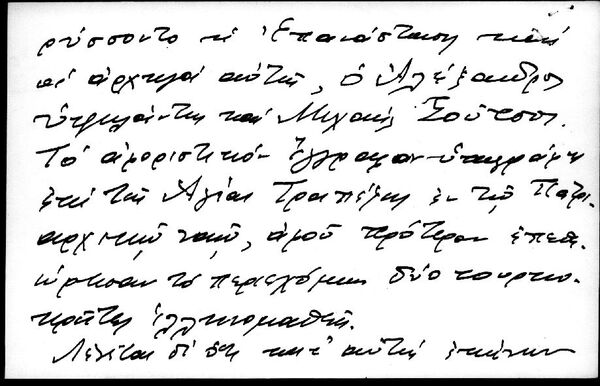 ρύσσοντο ἡ Ἐπανάστασις καὶ
οἱ ἀρχηγοὶ αὐτῆς, ὁ Ἀλέξανδρος
Ὑψηλάντης καὶ Μιχαὴλ Σοῦτσος.
Τὸ ἀφοριστικὸν ἔγγραφον ὑπεγράφη
ἐπὶ τῆς Ἁγίας Τραπέζης ἐν τῷ Πατρι-
αρχικῷ ναῷ, ἀφοῦ πρότερον ἐπεθε-
ώρησαν τὸ περιεχόμενον δύο τουρκο-
κρῆτες ἑλληνομαθεῖς.
Λέγεται δὲ ὅτι κατ' αὐτῆς